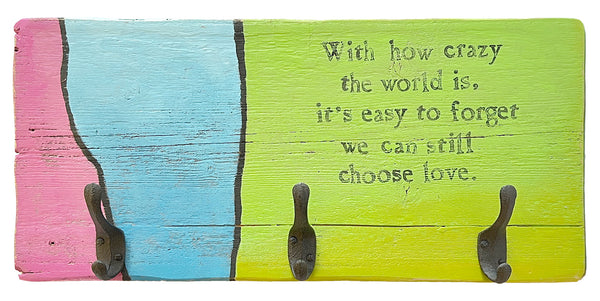 With how crazy
the world is,
it's easy to forget
we can still
choose love.